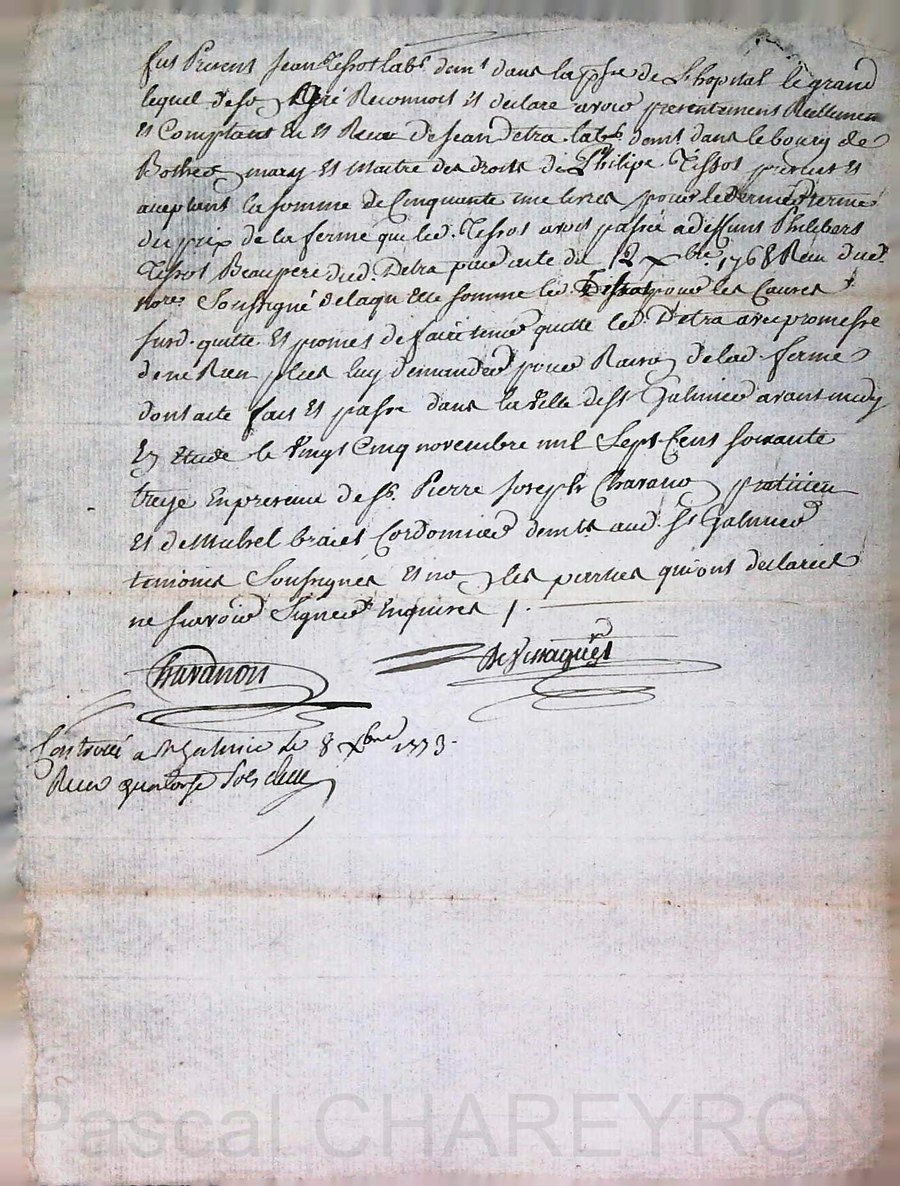 fut Present Jean Tissot lab.r dem.t dans la psse de Lhopital le grand
lequel de son gré Reconnoit et declare avoir presentement Réellement
et Comptant eu et Receu de Jean Detra lab.r demt. dans le bourg de
Botheon mary et Maitre des droits de Philipe Tissot present et
aceptant la somme de Cinquante une livres pour le dernier terme
du prix de la ferme que led. Tissot avoit passée a deffunt Philibert
Tissot Beaupere dud. Detra par acte du 12 xbre 1768 Receu dud.
nore. Soussigné de laquelle somme led. Tissot pour les Causes
surd. quitte et promet de faire tenir quitte led. Detra avec promesse
de ne Rien plus luy demander pour Raison de lad. ferme
dont acte fait et passé dans la ville de st Galmier avant midy
En Etude le Vingt Cinq novembre mil Sept Cent soixante
treize En presence de sr. Pierre Joseph Chavanon praticien
et de Michel Cordonnier demts. aud. st Galmier
temoins Soussignés et non les parties qui ont declarées
ne scavoir Signer Enquises /.
Chavanon
Controllé a st Galmier le 8 xbre 1773.
Receu quatorze sols
Pascal CHAREYRON